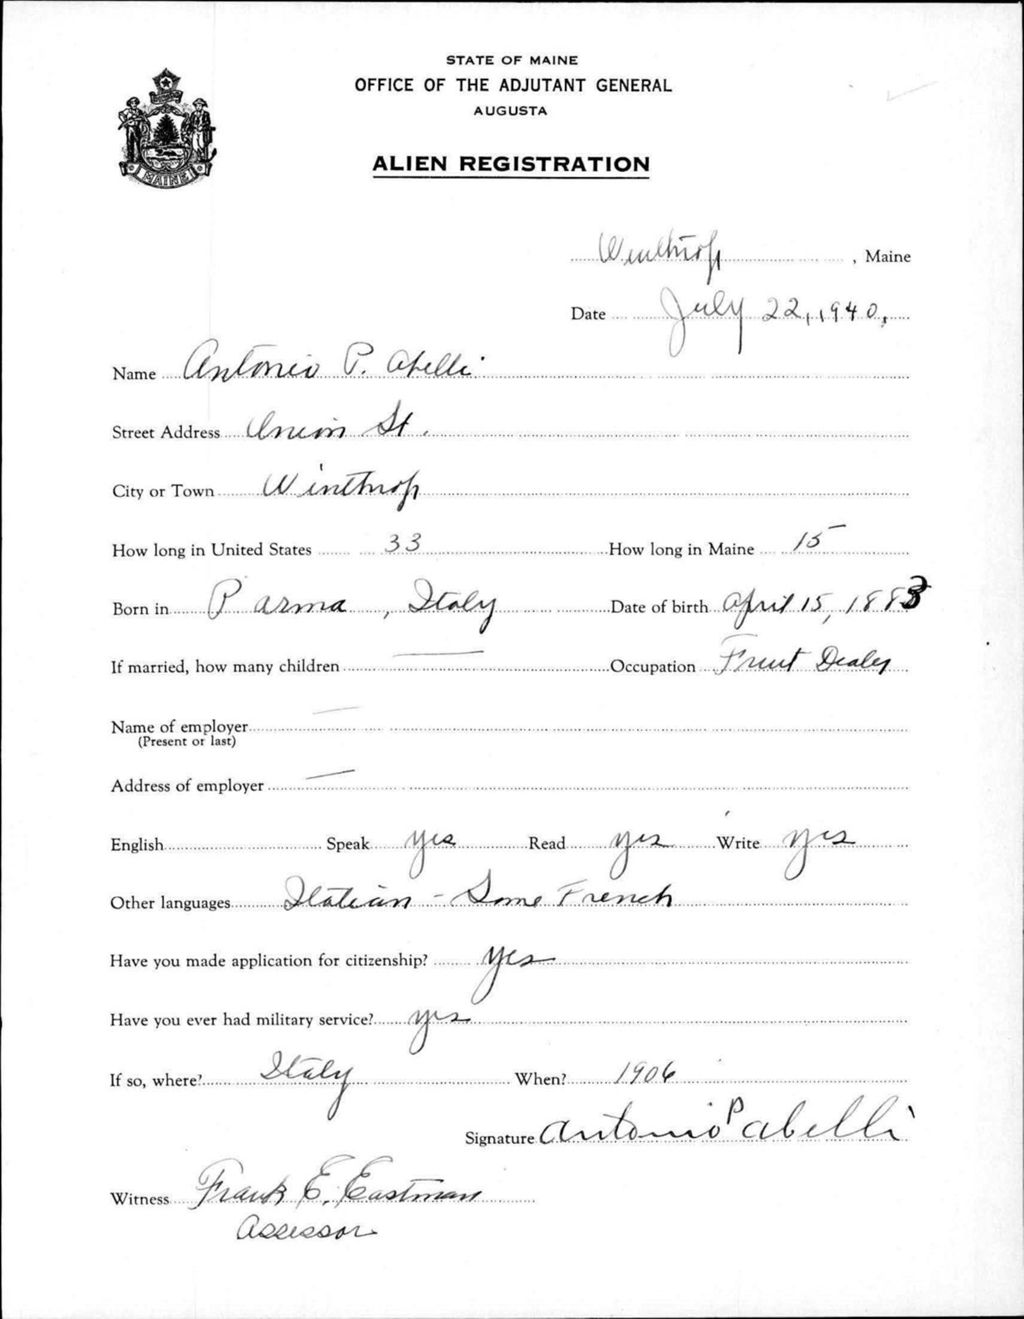 STATE OF MAINE
OFFICE OF THE ADJUTANT GENERAL
AUGUSTA
ALIEN REGISTRATION
MAINE
Winthrop, Maine
Date July 22, 1940.
Name Antonio P. Abelli
Street Address Union St.
City or Town Winthrop
How long in United States 33 How long in Maine 15
Born in Parma, Italy Date of birth April 15, 1883
If married, how many children — Occupation Fruit Dealer
Name of employer —
(Present or last)
Address of employer —
English Speak yes Read yes Write yes
Other languages Italian - Some French
Have you made application for citizenship? yes
Have you ever had military service? yes
If so, where? Italy When? 1906
Signature Antonio P Abelli
Witness Frank E. Eastman
Assessor